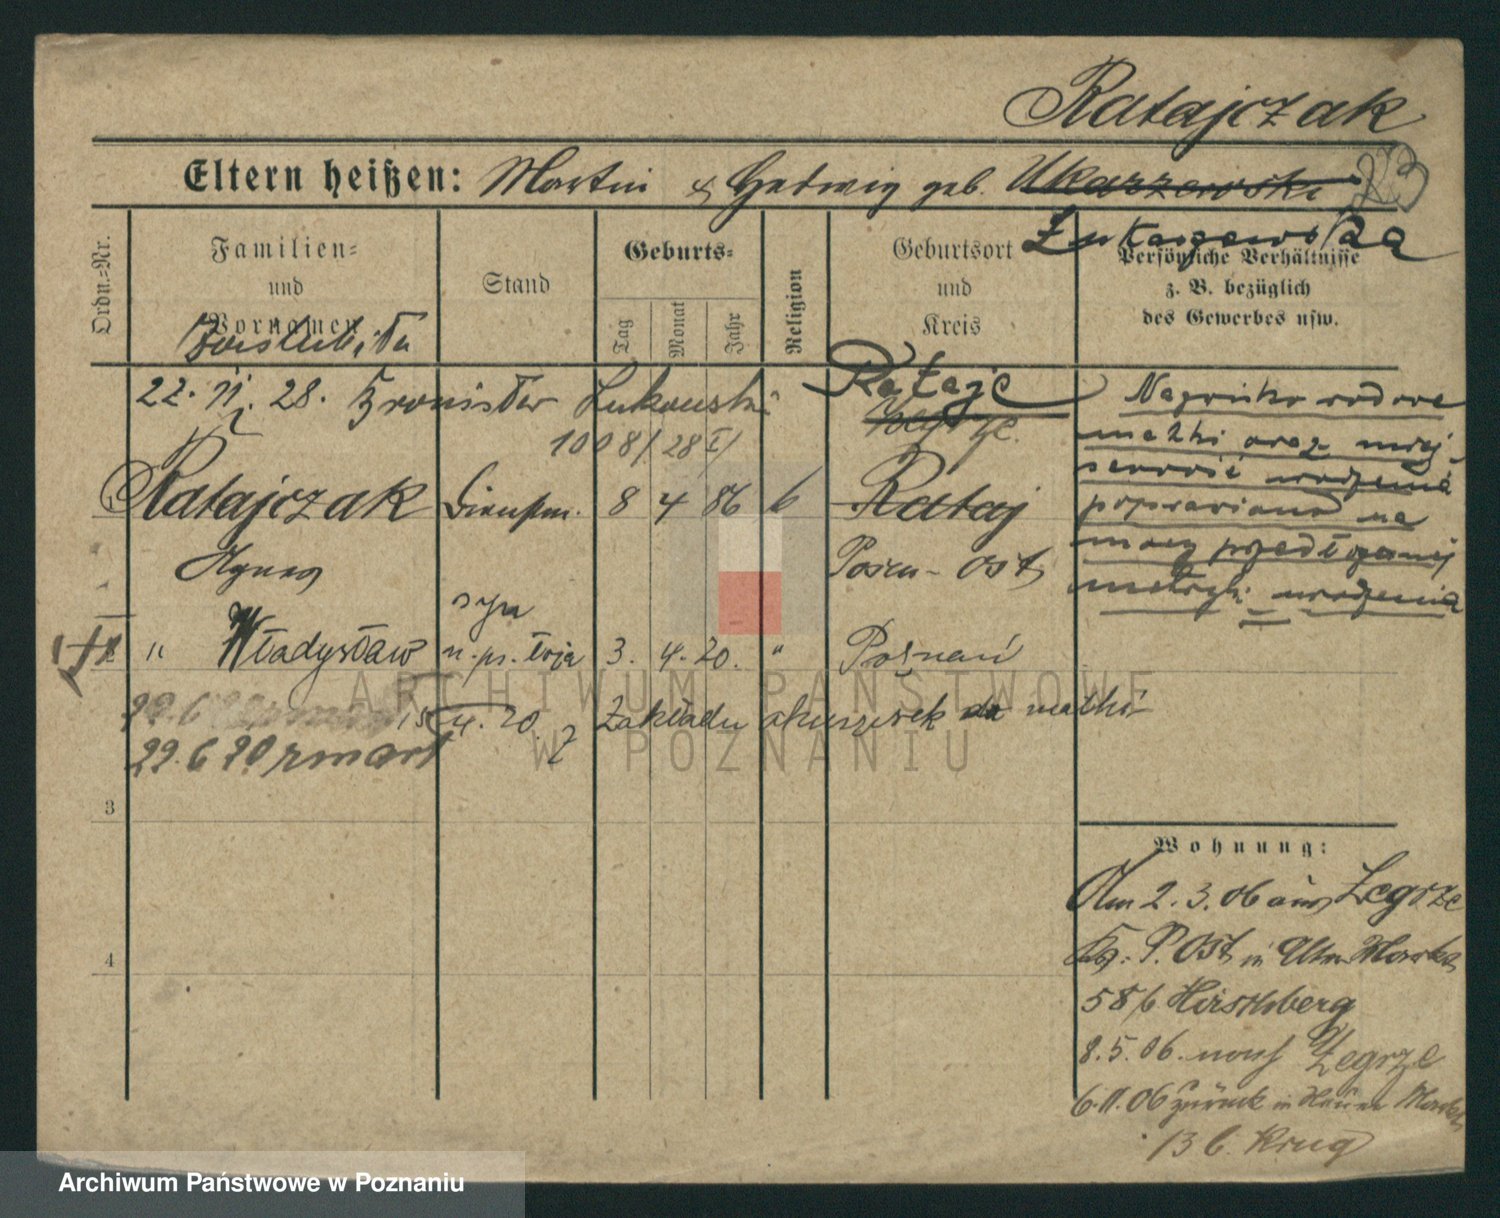 Ratajczak
223
Eltern heißen: Martin & Hedwig geb. Ukarzewski
Łukaszewska
Ordn.-Nr.
Familien- und Vornamen
Stand
Geburts-
Tag
Monat
Jahr
Religion
Geburtsort und Kreis
Persönliche Verhältnisse
z. B. bezüglich
des Gewerbes usw.
22. 11. 28. Bronisław Lukowski
1008/28
Rataje
Nazwisko rodowe
matki oraz miej-
scowość urodzenia
poprawiono na
mocy przedłożonej
metryki urodzenia
1 Ratajczak Dienstm. 8 4 86 k Rataj
Agnes Posen-Ost
syn
2 " Władysław n. pr. 3. 4. 20. " Poznań
15 4. 20. z Zakładu akuszerek do matki
29. 6 20 zmarł
3
4
Wohnung:
Am 2. 3. 06 aus Zegrze
Kr. P. Ost in
58 b Hirschberg
8. 5. 06. nach Zegrze
6. 11. 06 zurück in
13 b. Krug
ARCHIWUM PAŃSTWOWE
W POZNANIU
Archiwum Państwowe w Poznaniu